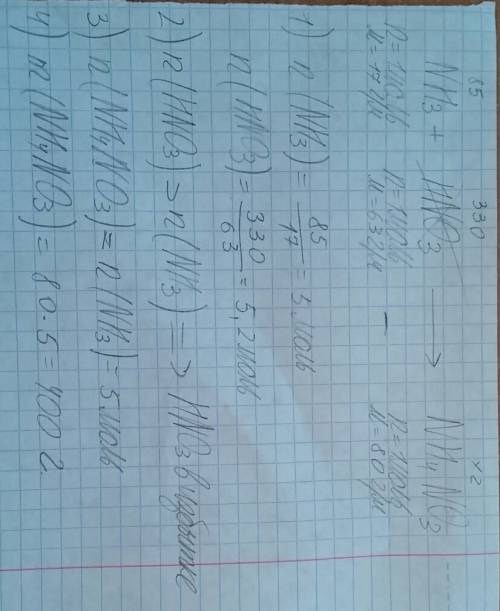 85 330 x г
NH3 + HNO3 → NH4NO3
n=1моль n=1моль — n=1моль
M=17г/м M=63г/м M=80г/м
1) n(NH3) = 85/17 = 5моль
n(HNO3) = 330/63 = 5,2моль
2) n(HNO3) > n(NH3) => HNO3 в избытке
3) n(NH4NO3) = n(NH3) = 5моль
4) m(NH4NO3) = 80·5 = 400 г.